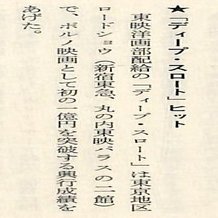 ★「ディープ・スロート」ヒット
東映洋画部配給の「ディープ・スロート」は東京地区
ロードショウ（新宿東急、丸の内東映パラスの二館）
で、ポルノ映画として初の一億円を突破する興行成績を
あげた。